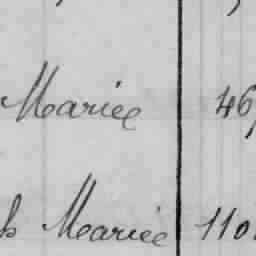 Mariée 46
Mariée 110